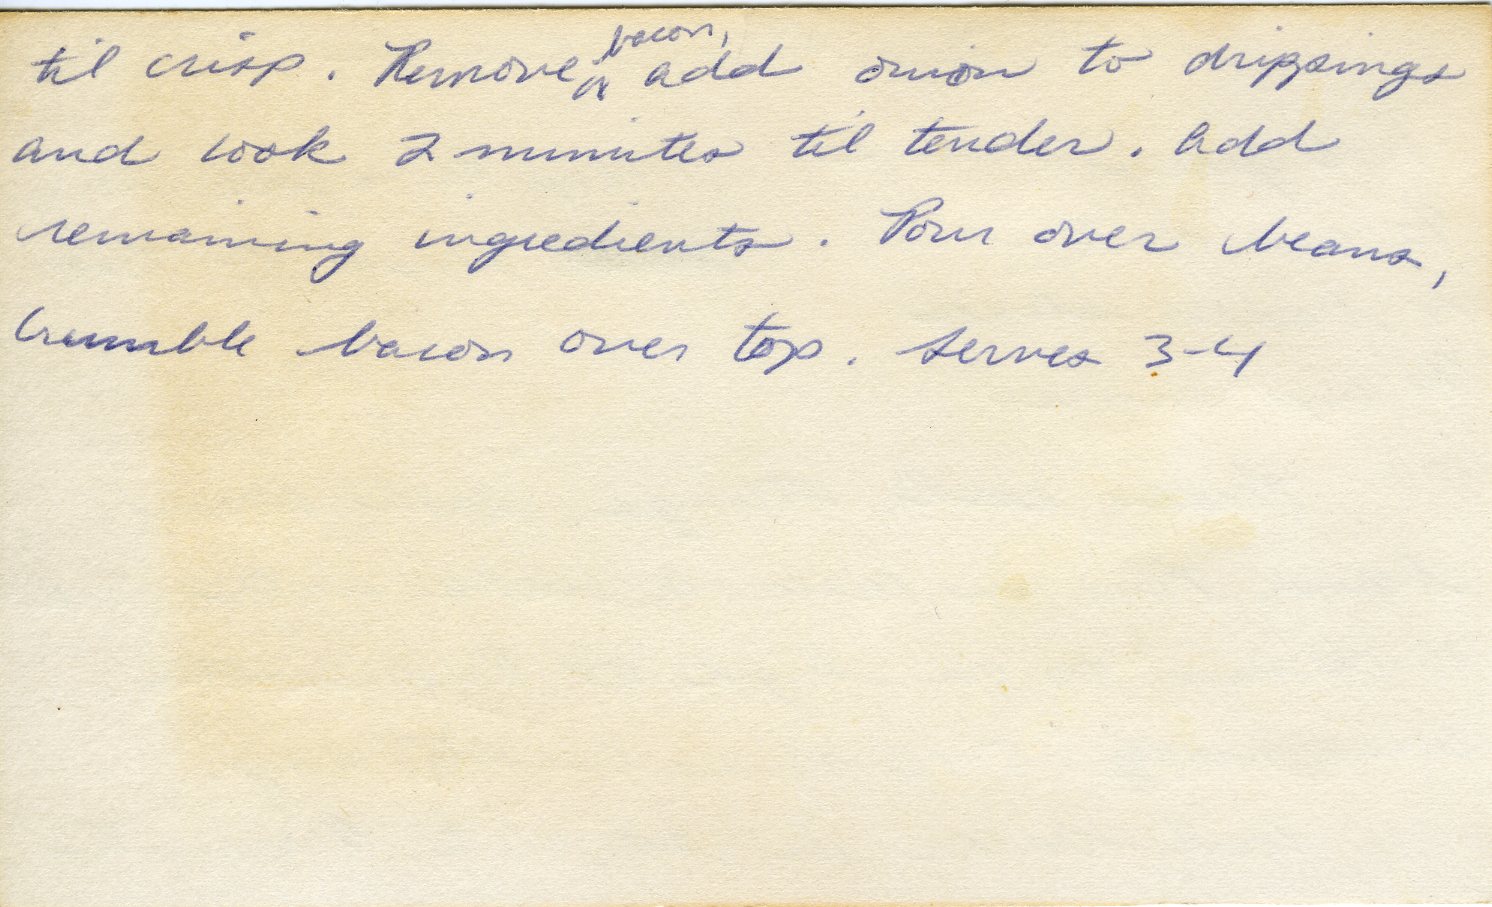 til crisp. Remove bacon, add onion to drippings
and cook 2 minutes til tender. Add
remaining ingredients. Pour over beans,
crumble bacon over top. Serves 3-4